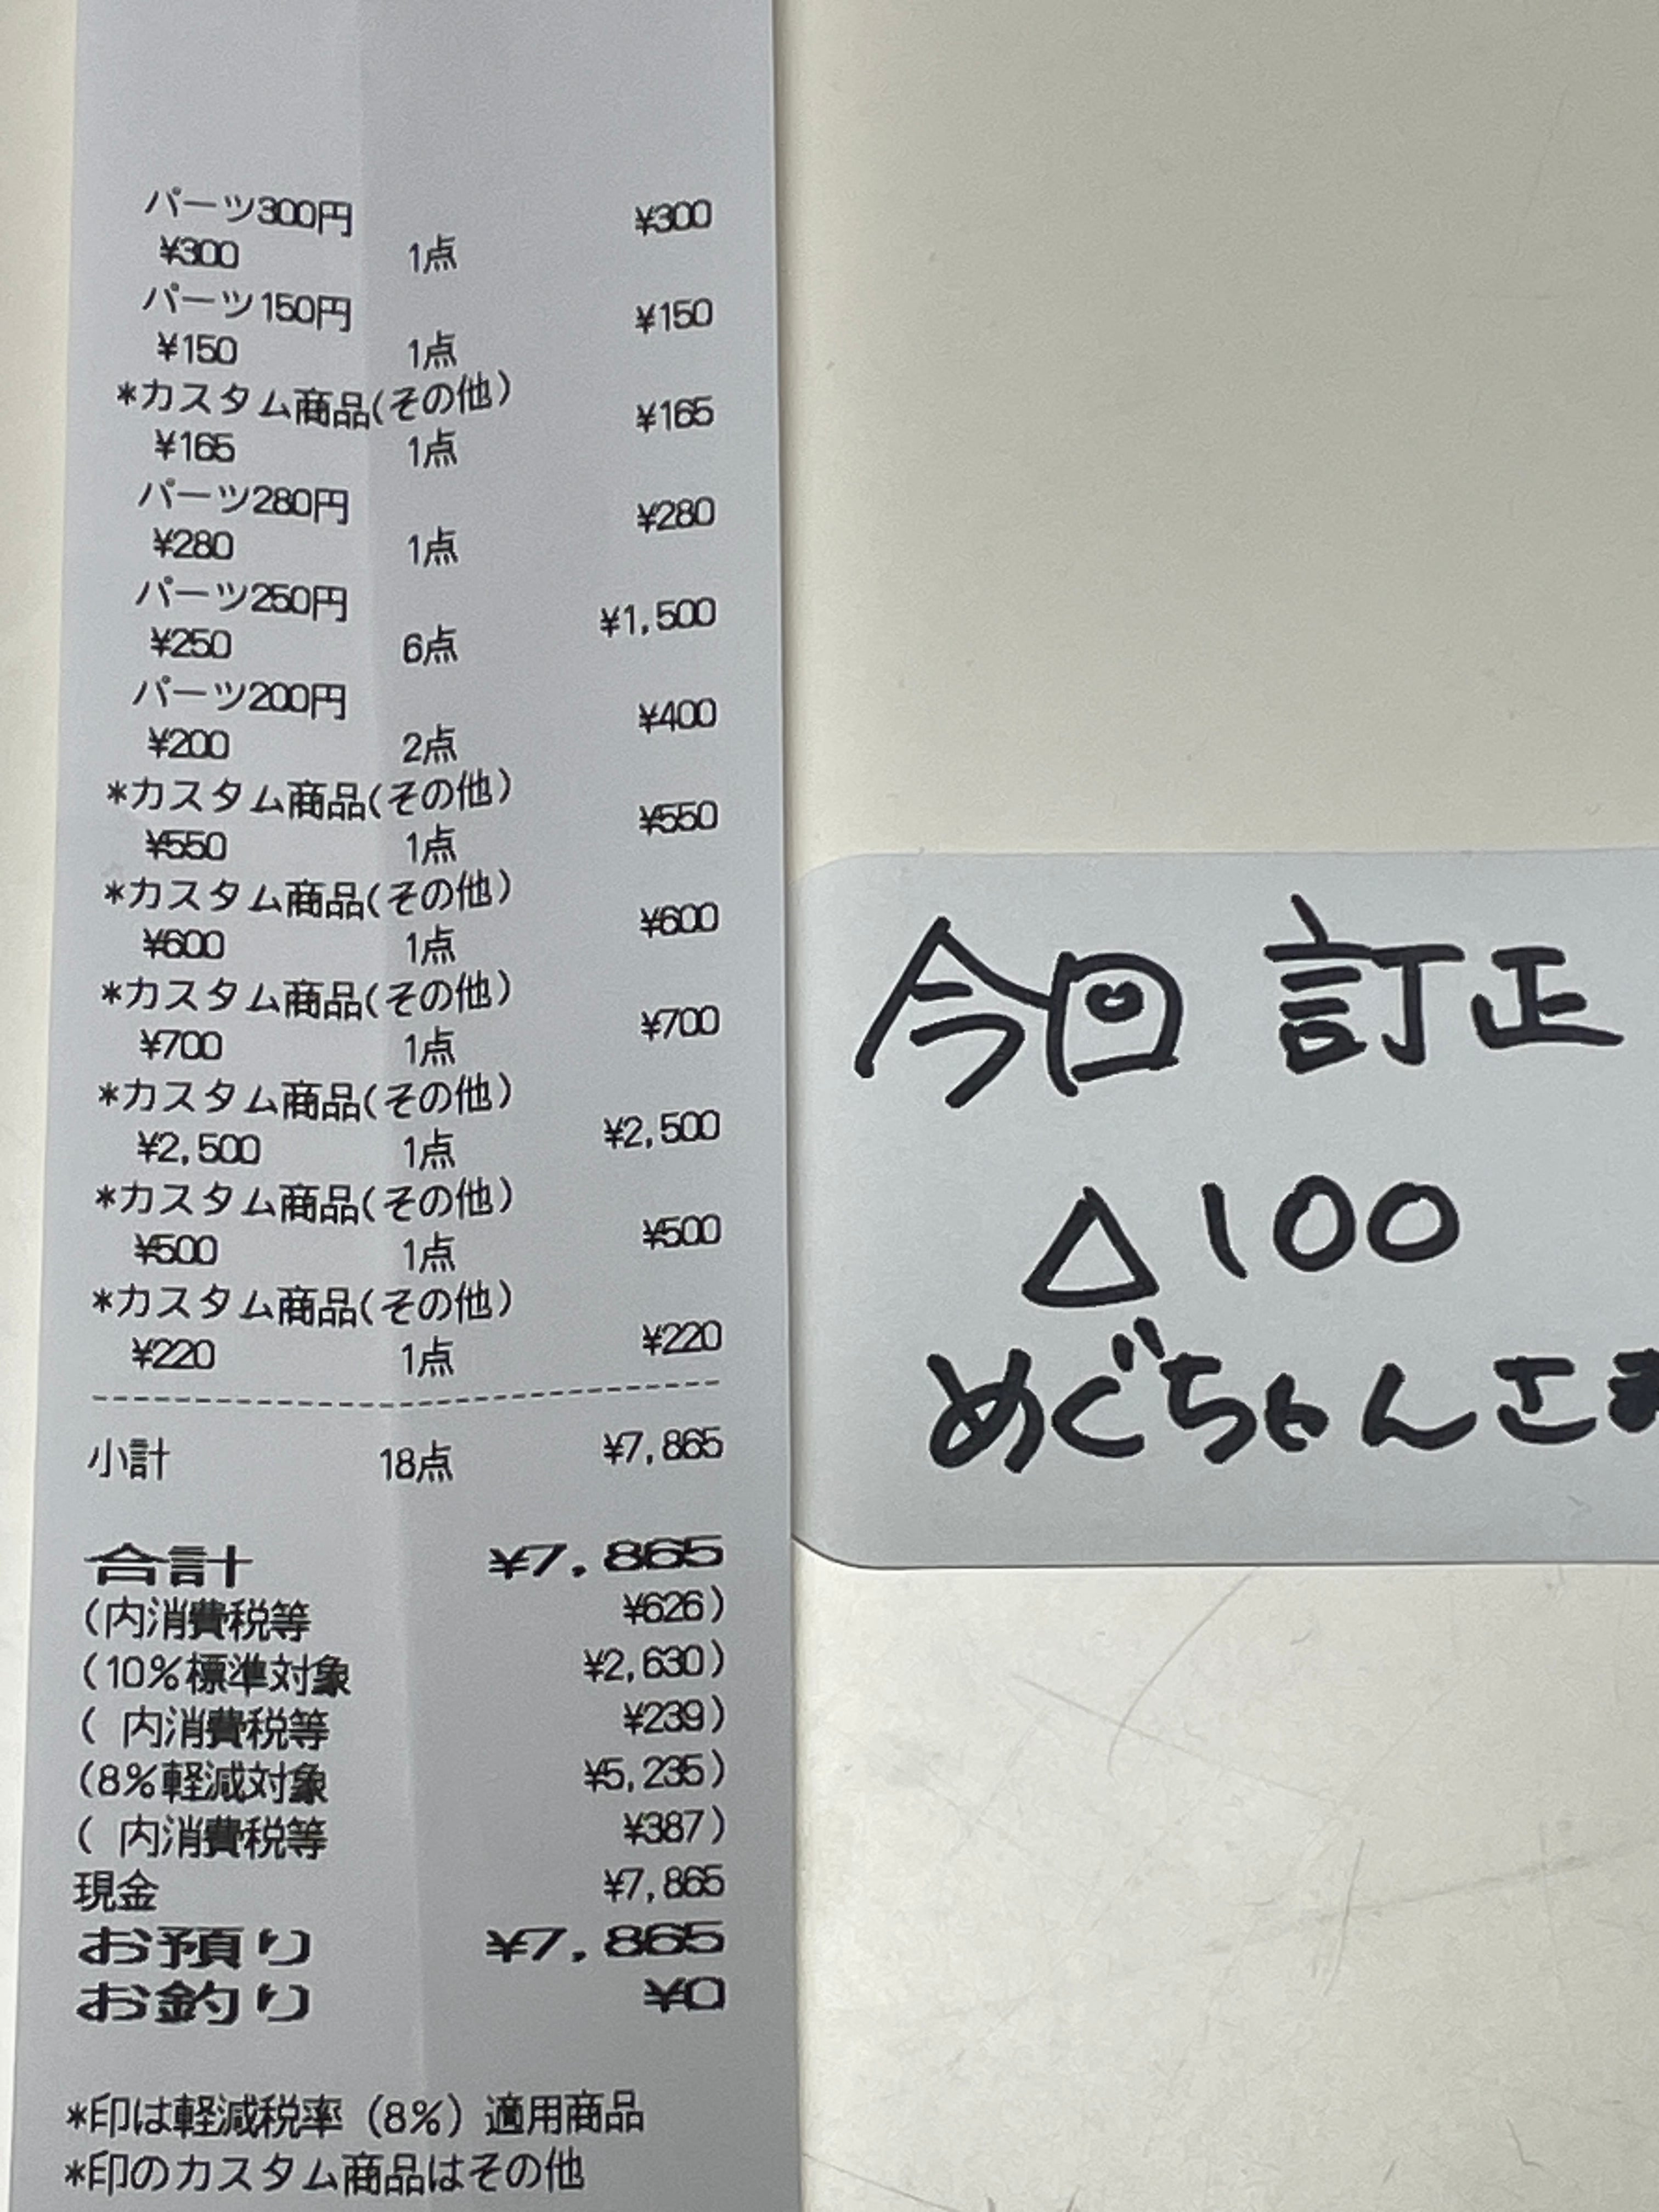 パーツ300円 ¥300
¥300 1点
パーツ150円 ¥150
¥150 1点
*カスタム商品(その他) ¥165
¥165 1点
パーツ280円 ¥280
¥280 1点
パーツ250円 ¥1,500
¥250 6点
パーツ200円 ¥400
¥200 2点
*カスタム商品(その他) ¥550
¥550 1点
*カスタム商品(その他) ¥600
¥600 1点
*カスタム商品(その他) ¥700
¥700 1点
*カスタム商品(その他) ¥2,500
¥2,500 1点
*カスタム商品(その他) ¥500
¥500 1点
*カスタム商品(その他) ¥220
¥220 1点
小計 18点 ¥7,865
合計 ¥7,865
(内消費税等 ¥626)
(10%標準対象 ¥2,630)
( 内消費税等 ¥239)
(8%軽減対象 ¥5,235)
( 内消費税等 ¥387)
現金 ¥7,865
お預り ¥7,865
お釣り ¥0
*印は軽減税率(8%)適用商品
*印のカスタム商品はその他
今回 訂正
△100
めぐちゃんさま